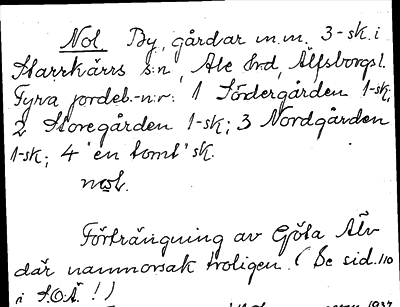 Nol By, gårdar m.m. 3-sk. i
Starrkärrs s:n, Ale hrd, Älfsborgs l.
Fyra jordeb.-n:r: 1 Södergården 1-sk,
2 Storegården 1-sk; 3 Nordgården
1-sk; 4 'en tomt' sk.
nol.
Förträngning av Göta Älv
där namnorsak troligen. (Se sid. 110
i S.O.Ä.!)
1937